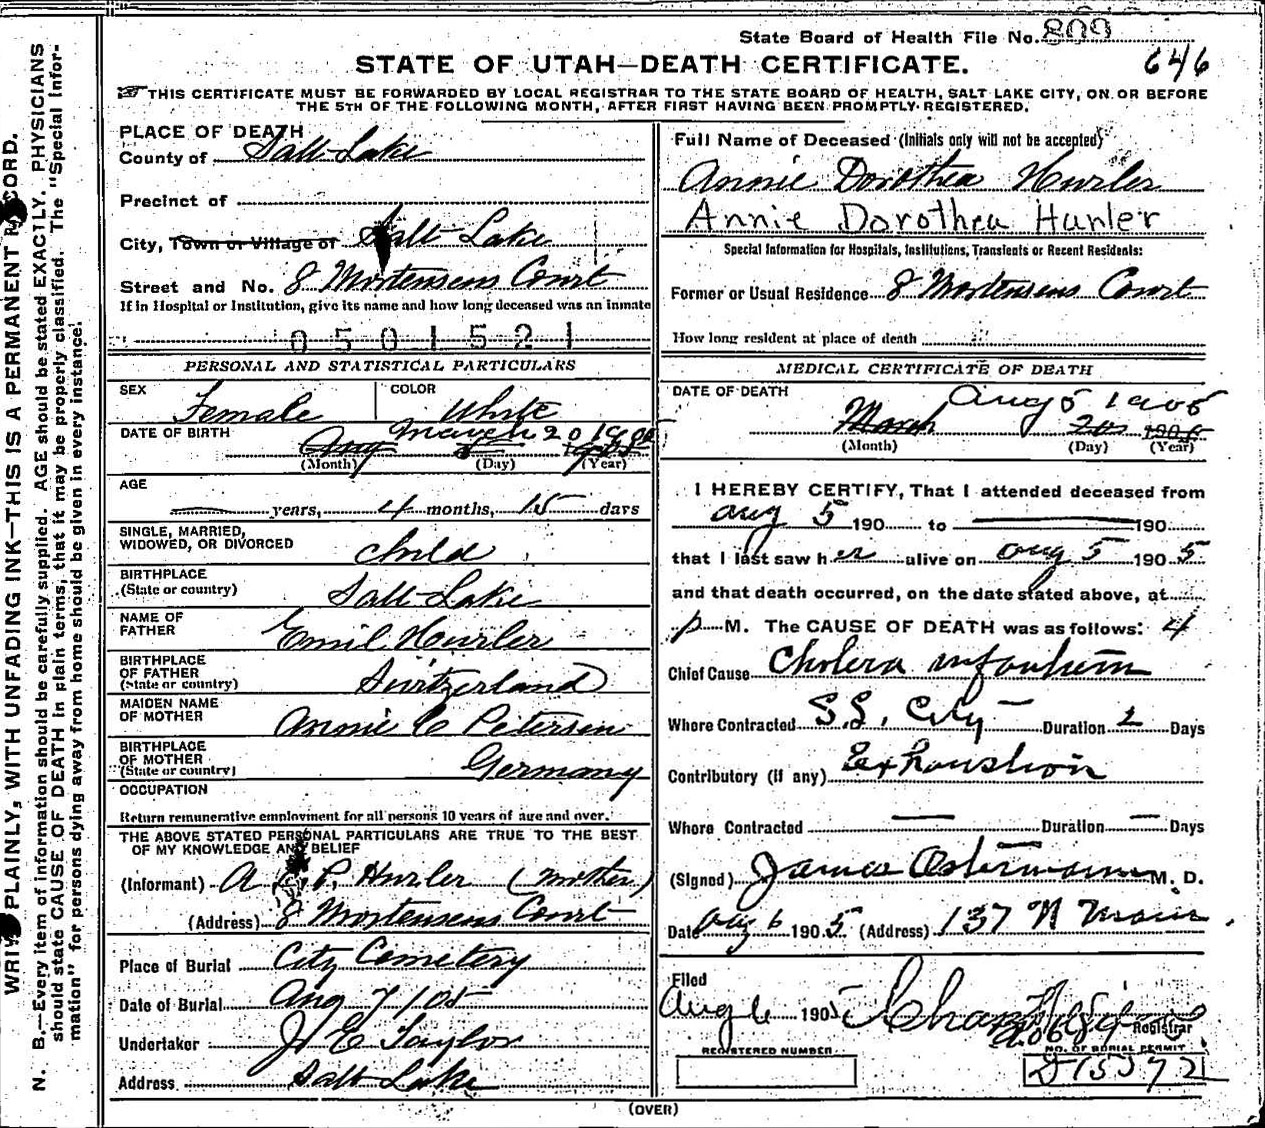 State Board of Health File No. 809
646
STATE OF UTAH—DEATH CERTIFICATE.
THIS CERTIFICATE MUST BE FORWARDED BY LOCAL REGISTRAR TO THE STATE BOARD OF HEALTH, SALT LAKE CITY, ON OR BEFORE
THE 5TH OF THE FOLLOWING MONTH, AFTER FIRST HAVING BEEN PROMPTLY REGISTERED.
WRITE PLAINLY, WITH UNFADING INK—THIS IS A PERMANENT RECORD.
N. B.—Every item of information should be carefully supplied. AGE should be stated EXACTLY. PHYSICIANS
should state CAUSE OF DEATH in plain terms, that it may be properly classified. The "Special Infor-
mation" for persons dying away from home should be given in every instance.
PLACE OF DEATH
County of Salt Lake
Precinct of
City, Town or Village of Salt Lake
Street and No. 8 Mortensens Court
If in Hospital or Institution, give its name and how long deceased was an inmate
0501521
PERSONAL AND STATISTICAL PARTICULARS
SEX Female COLOR White
DATE OF BIRTH Aug March 20 1905
(Month) (Day) (Year)
AGE
years, 4 months, 15 days
SINGLE, MARRIED,
WIDOWED, OR DIVORCED child
BIRTHPLACE
(State or country) Salt Lake
NAME OF
FATHER Emil Hurler
BIRTHPLACE
OF FATHER
(State or country) Switzerland
MAIDEN NAME
OF MOTHER Annie C Petersen
BIRTHPLACE
OF MOTHER
(State or country) Germany
OCCUPATION
Return remunerative employment for all persons 10 years of age and over.
THE ABOVE STATED PERSONAL PARTICULARS ARE TRUE TO THE BEST
OF MY KNOWLEDGE AND BELIEF
(Informant) A C P. Hurler (Mother)
(Address) 8 Mortensens Court
Place of Burial City Cemetery
Date of Burial Aug 7/05
Undertaker J E Taylor
Address Salt Lake
Full Name of Deceased (Initials only will not be accepted)
Annie Dorothea Hurler
Annie Dorothea Hurler
Special Information for Hospitals, Institutions, Transients or Recent Residents:
Former or Usual Residence 8 Mortensens Court
How long resident at place of death
MEDICAL CERTIFICATE OF DEATH
DATE OF DEATH Aug 5 1905
March 20 1905
(Month) (Day) (Year)
I HEREBY CERTIFY, That I attended deceased from
Aug 5 190 to 190
that I last saw her alive on Aug 5 1905
and that death occurred, on the date stated above, at
p M. The CAUSE OF DEATH was as follows: 4
Chief Cause Cholera infantum
Where Contracted S.L. City Duration 2 Days
Contributory (if any) Exhaustion
Where Contracted — Duration — Days
(Signed) James Ostermann M. D.
Date Aug 6 1905 (Address) 137 N Main
Filed
Aug 6 1905
Registrar
REGISTERED NUMBER
NO. OF BURIAL PERMIT
(OVER)